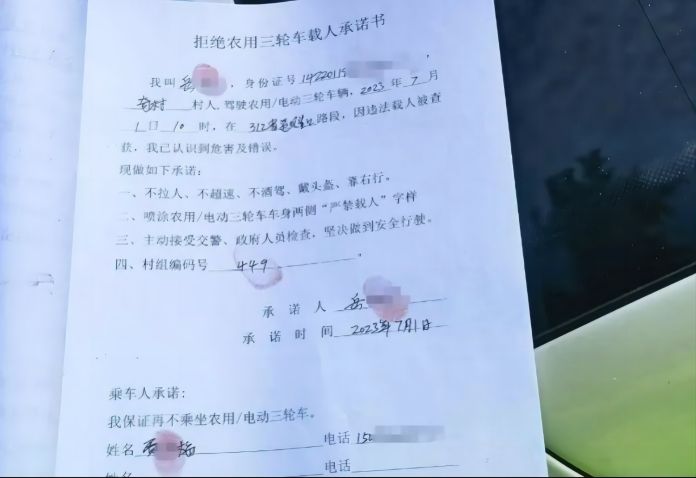 拒绝农用三轮车载人承诺书
我叫岳，身份证号14220115，
村人，驾驶农用/电动三轮车辆，2023年7月
1日10时，在312省路段，因违法载人被查
获，我已认识到危害及错误。
现做如下承诺：
一、不拉人、不超速、不酒驾、戴头盔、靠右行。
二、喷涂农用/电动三轮车车身两侧“严禁载人”字样
三、主动接受交警、政府人员检查，坚决做到安全行驶。
四、村组编码号449。
承诺人 岳
承诺时间 2023年7月1日
乘车人承诺：
我保证再不乘坐农用/电动三轮车。
姓名 电话150
姓名 电话